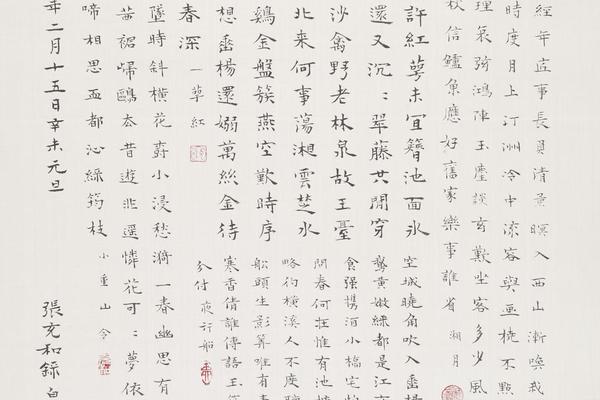 經年底事長負清景暝入西山漸喚我
時度月上汀洲冷中流容與畫橈不點
理哀弦鴻陣玉麈談玄歎坐客多少風
秋信鱸魚應好舊家樂事誰省 湘月
許紅萼未宜簪池面冰
還又沉〻翠藤共閒穿
沙禽野老林泉故王臺
北來何事蕩湘雲楚水
雞金盤簇燕空歎時序
想垂楊還嫋萬絲金待
春深 一萼紅
空城曉角吹入垂楊
鵞黃嫩綠都是江南
食強攜酒小橋宅怕
問春何在惟有池塘
略彴橫溪人不度
船頭生影算唯有春
寒香倩誰傳語玉笙
分付 夜行船
墜時斜橫花樹小浸愁漪一春幽思有
茜裙歸鷗去昔遊非遙憐花可〻夢依
啼相思血都沁綠筠枝 小重山令
年二月十五日辛未元旦 張充和錄